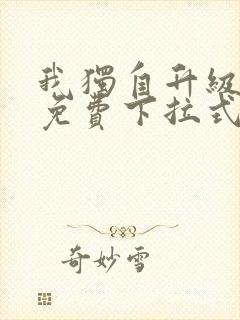 我獨自升級
免費下拉式
奇妙雪